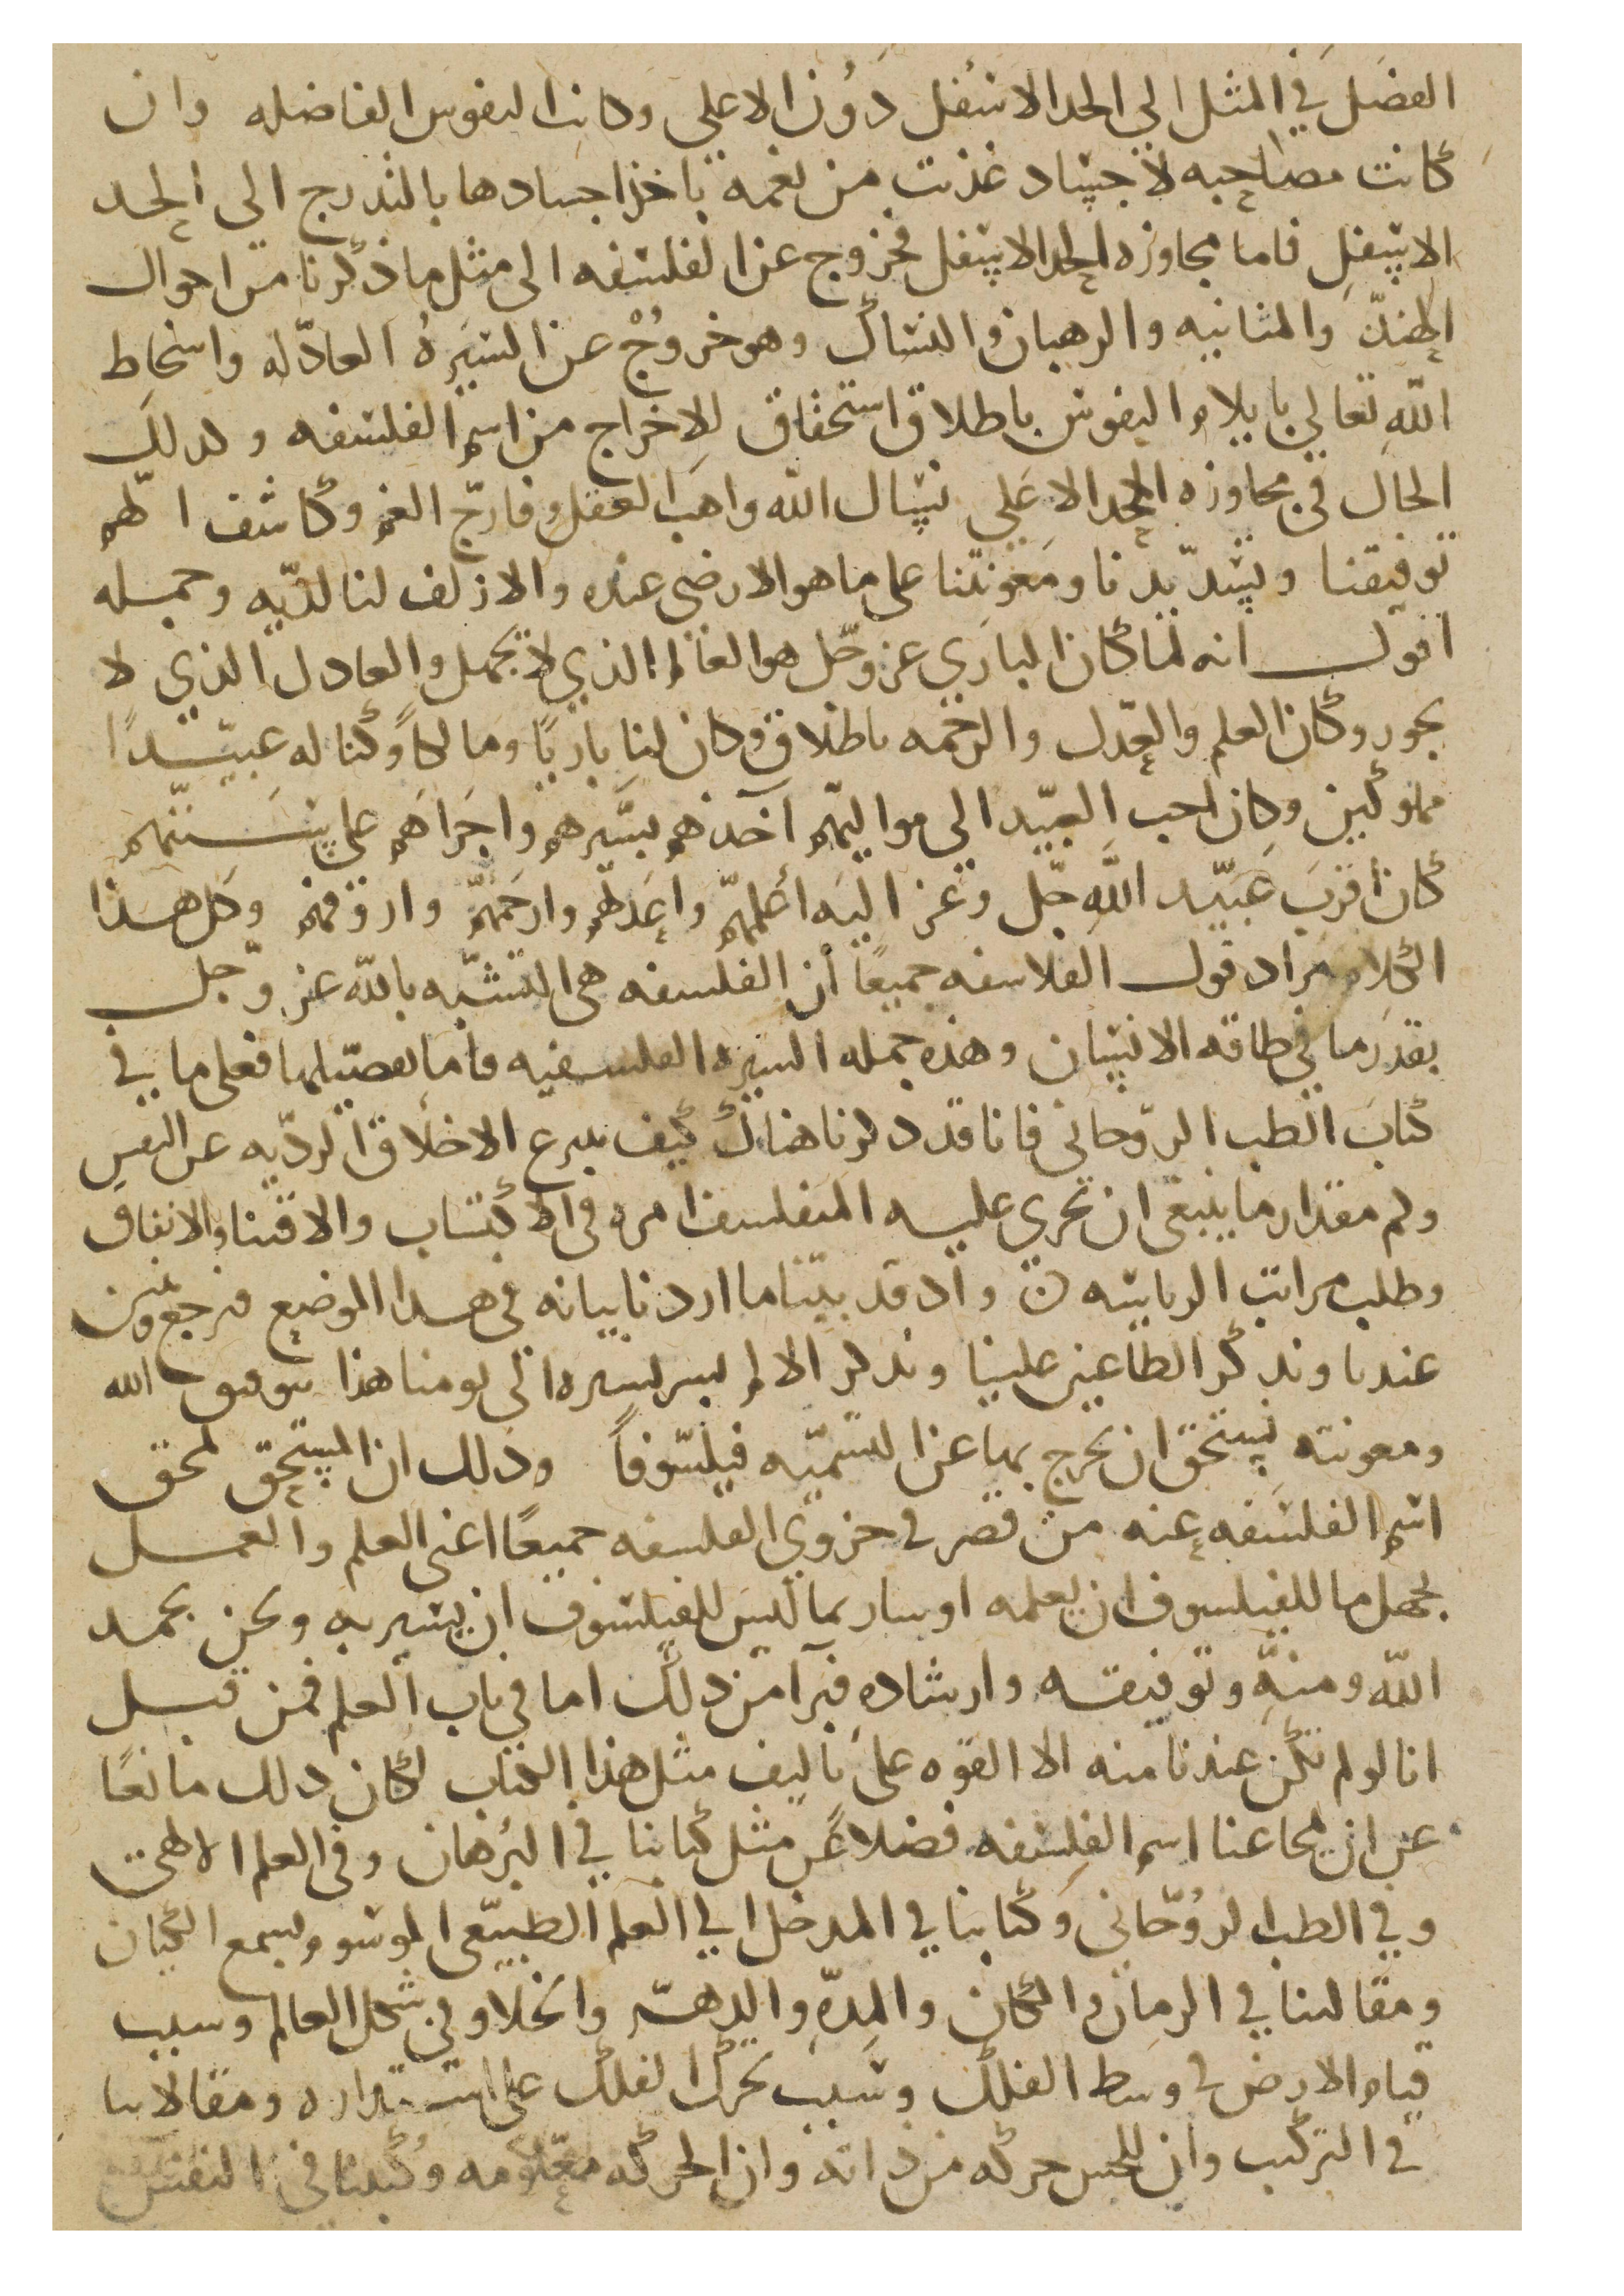 الفضل في المثل الي الحد الاسفل دون الاعلي وكانت النفوس الفاضله وان
كانت مصاحبه لاجساد غذيت من نعمه تاخذ اجسادها بالتدرج الى الحد
الاسفل فاما مجاوزه الحد الاسفل فخروج عن الفلسفه الى مثل ما ذكرنا من احوال
الهند والمنانيه والرهبان والنساك وهو خروج عن السيره العادله واسخاط
الله تعالي بايلام النفوس باطلا واستحقاق للاخراج من اسم الفلسفه وكذلك
الحال في مجاوزه الحد الاعلي نسال الله واهب العقل وفارج الغم وكاشف الهم
توفيقنا وتسديدنا ومعونتنا على ما هو الارضى عنده والازلف لنا لديه وجمله
اقول انه لما كان الباري عز وجل هو العالم الذي لا يجهل والعادل الذي لا
يجور وكان العلم والعدل والرحمه باطلاق وكان لنا باريا ومالكا وكنا له عبيدا
مملوكين وكان احب العبيد الي مواليهم آخذهم بسيرهم واجراهم على سننهم
كان اقرب عبيد الله جل وعز اليه أعلمهم واعدلهم وارحمهم وارؤفهم وكل هذا
الكلام مراد قول الفلاسفه جميعا أن الفلسفه هي التشبه بالله عز وجل
بقدر ما في طاقه الانسان وهذه جمله السيره الفلسفيه فاما تفصيلها فعلى ما في
كتاب الطب الروحاني فانا قد ذكرنا هناك كيف تنزع الاخلاق الرديه عن النفس
وكم مقدار ما ينبغي ان يجري عليه المتفلسف امره في الاكتساب والاقتنا والانفاق
وطلب مراتب الرياسه ن واذ قد بينا ما اردنا بيانه في هذا الموضع فنرجع ونبين
عندنا ونذكر الطاعنين علينا ونذكر الا لم نسر بسيره الى يومنا هذا بتوفيق الله
ومعونته يستحق ان يخرج بها عن التسميه فيلسوفا وذلك ان المستحق لمحق
اسم الفلسفه عنه من قصر في جزوي الفلسفه جميعا اعني العلم والعمل
بجهل ما للفيلسوف ان يعلمه او سار بما ليس للفيلسوف ان يسير به ونحن بحمد
الله ومنه وتوفيقه وارشاده فبرآ من ذلك اما في باب العلم فمن قبل
انا لو لم تكن عندنا منه الا القوه على تاليف مثل هذا الكتاب لكان ذلك مانعا
عن ان يمحا عنا اسم الفلسفه فضلا عن مثل كتابنا في البرهان وفي العلم الالهي
وفي الطب الروحاني وكتابنا في المدخل الي العلم الطبيعي الموسوم بسمع الكيان
ومقالتنا في الزمان والمكان والمده والدهر والخلا وفي شكل العالم وسبب
قيام الارض في وسط الفلك وسبب تحرك الفلك على استداره ومقالاتنا
في التركيب وان للجسم حركه من ذاته وان الحركه معلومه وكتبنا في النفس